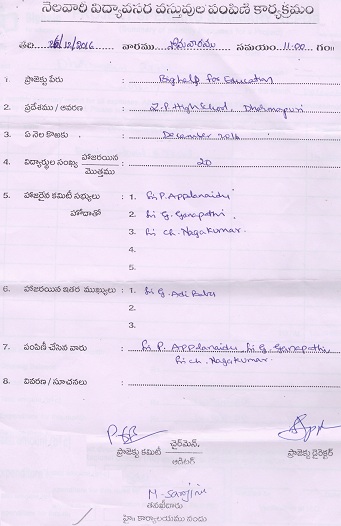 నెలవారీ విద్యావసర వస్తువుల పంపిణీ కార్యక్రమం
తేది 26/12/2016 వారము సోమవారము సమయం 11-00 గం॥
1. ప్రాజెక్టు పేరు : Big help for Education
2. ప్రదేశము / ఆవరణ : Z.P. High School, Dharmapuri
3. ఏ నెల కొఱకు : December 2016
4. విద్యార్థుల సంఖ్య హాజరయిన / మొత్తము : 20
5. హాజరైన కమిటీ సభ్యులు : 1. Sri P. Appalanaidu
హోదాతో 2. Sri G. Ganapathi
3. Sri Ch. Nagakumar.
4.
5.
6. హాజరయిన ఇతర ముఖ్యులు : 1. Sri G. Adi Babu
2.
3.
7. పంపిణీ చేసిన వారు : Sri P. Appalanaidu Sri G. Ganapathi
Sri Ch. Nagakumar.
8. వివరణ / సూచనలు :
ప్రాజెక్టు కమిటీ చైర్మెన్. / ఆడిటర్ ప్రాజెక్టు డైరెక్టర్
M. Sarojini
తనఖీదారు
హై. కార్యాలయము నందు